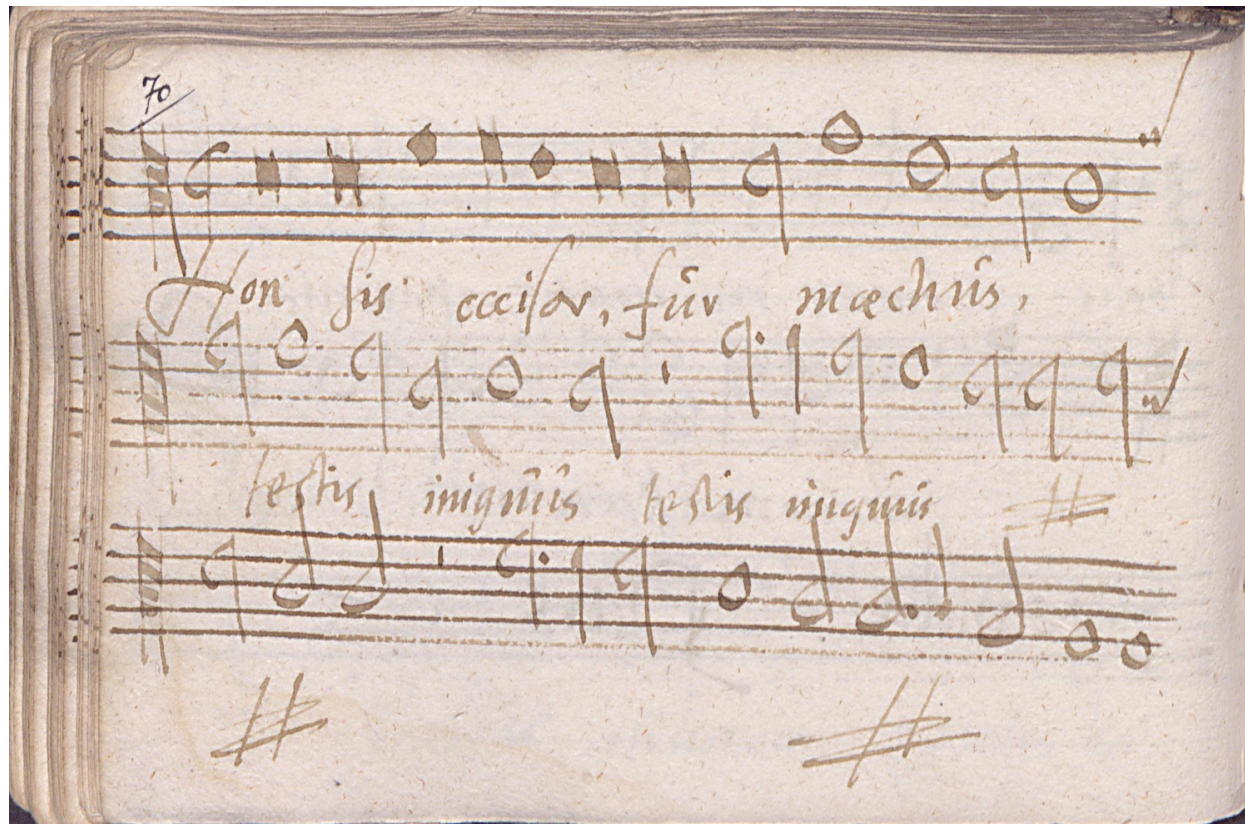 70
Non sis occisor, fûr mœchûs,
testis iniqûûs testis iniqûûs